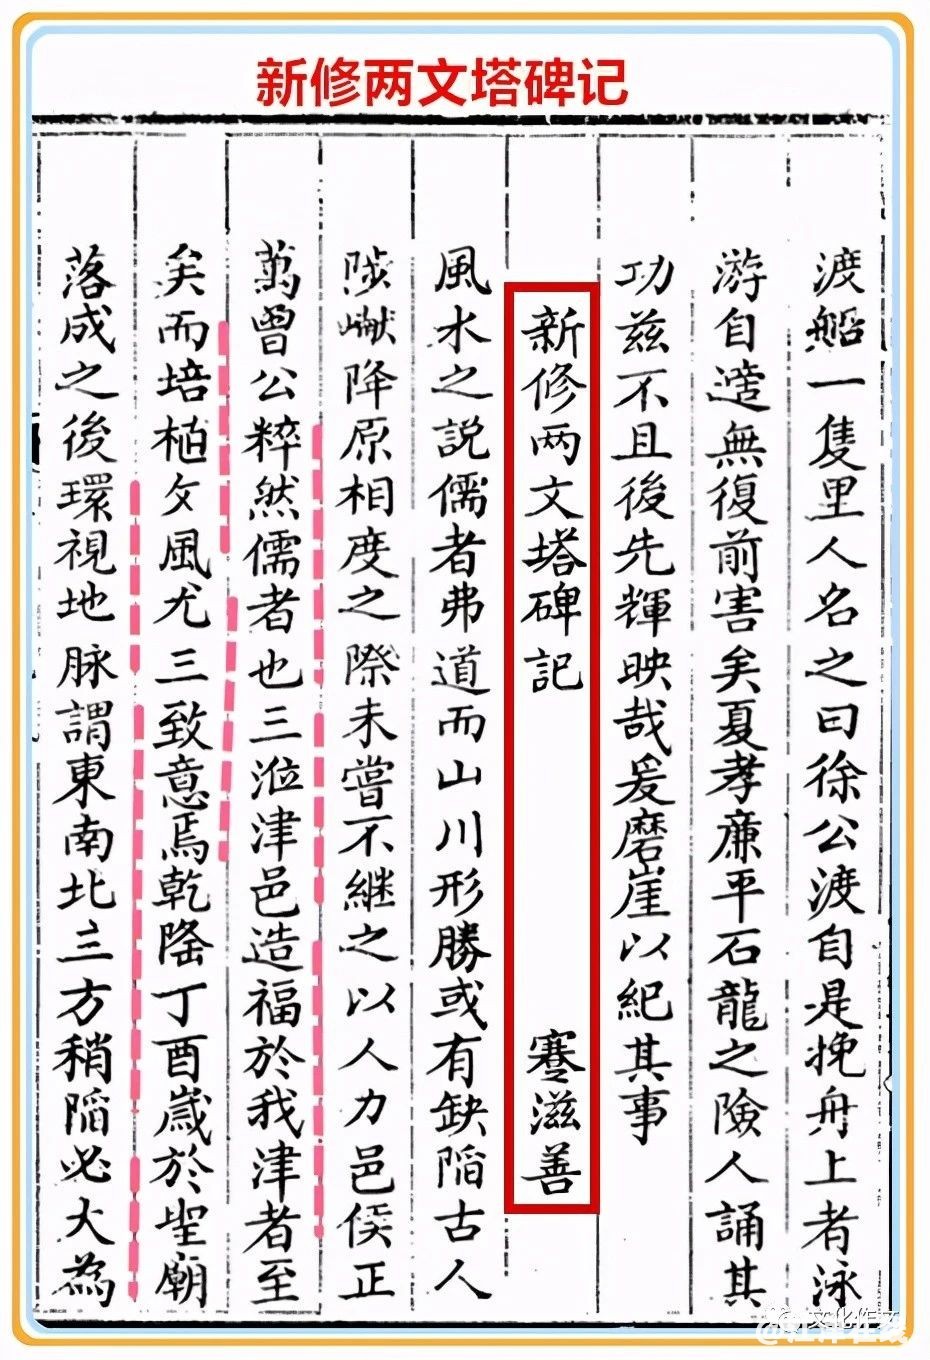 新修两文塔碑记
渡船一隻里人名之曰徐公渡自是挽舟上者泳
游自造無復前害矣夏孝廉平石龍之險人誦其
功兹不且後先輝映哉爰磨崖以紀其事
新修两文塔碑記 蹇滋善
風水之説儒者弗道而山川形勝或有缺陷古人
陟巘降原相度之際未嘗不継之以人力邑侯正
萬曾公粹然儒者也三涖津邑造福於我津者至
矣而培植文風尤三致意焉乾隆丁酉嵗於聖廟
落成之後環視地脉謂東南北三方稍陷必大為